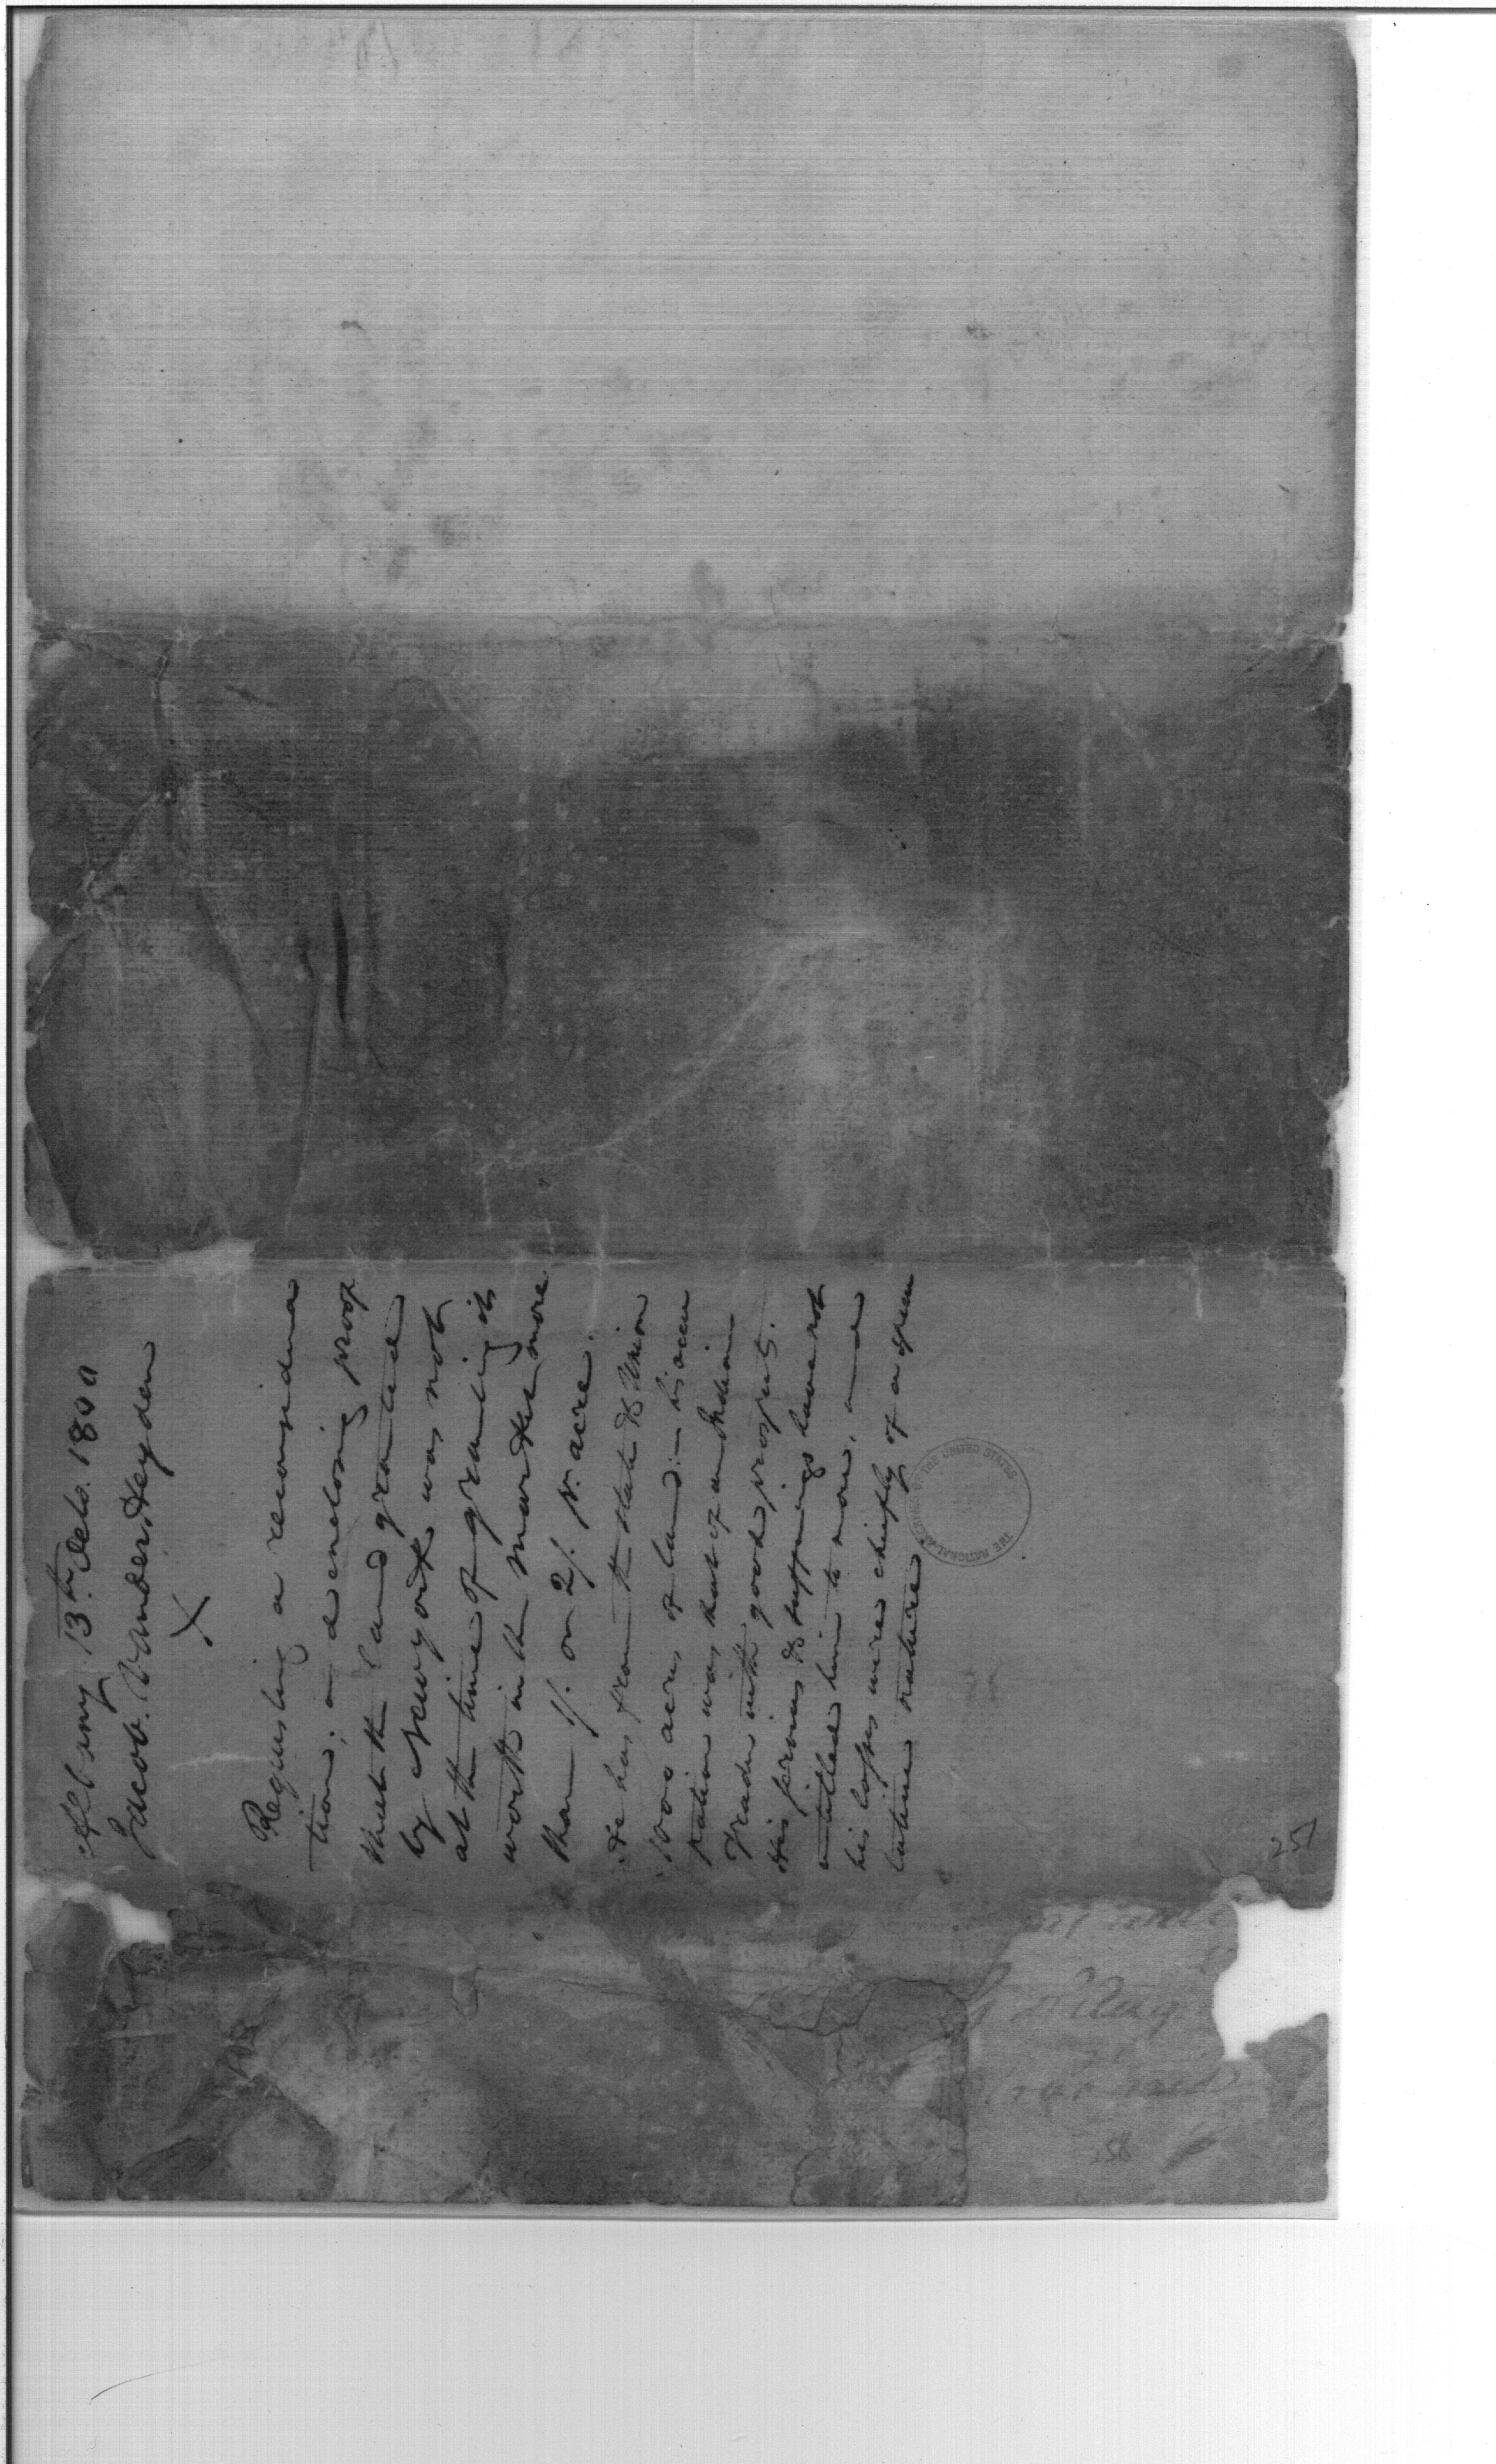 Albany 13th. Feb. 1800
Jacob. Vander Heyden
X
Requesting a reconsidera
tion; and enclosing proof
that the land granted
by New york was not
at the time of granting it
worth in the market more
than 1/. or 2/. pr. acre.
He has from the State &
1000 acres of land:— his occu
pation was that of an Indian
Trader with good prospects.
His services & sufferings have not
entitled him to more, and
his losses were chiefly of a specu
lative nature
THE NATIONAL ARCHIVES OF THE UNITED STATES
257
Aug
256